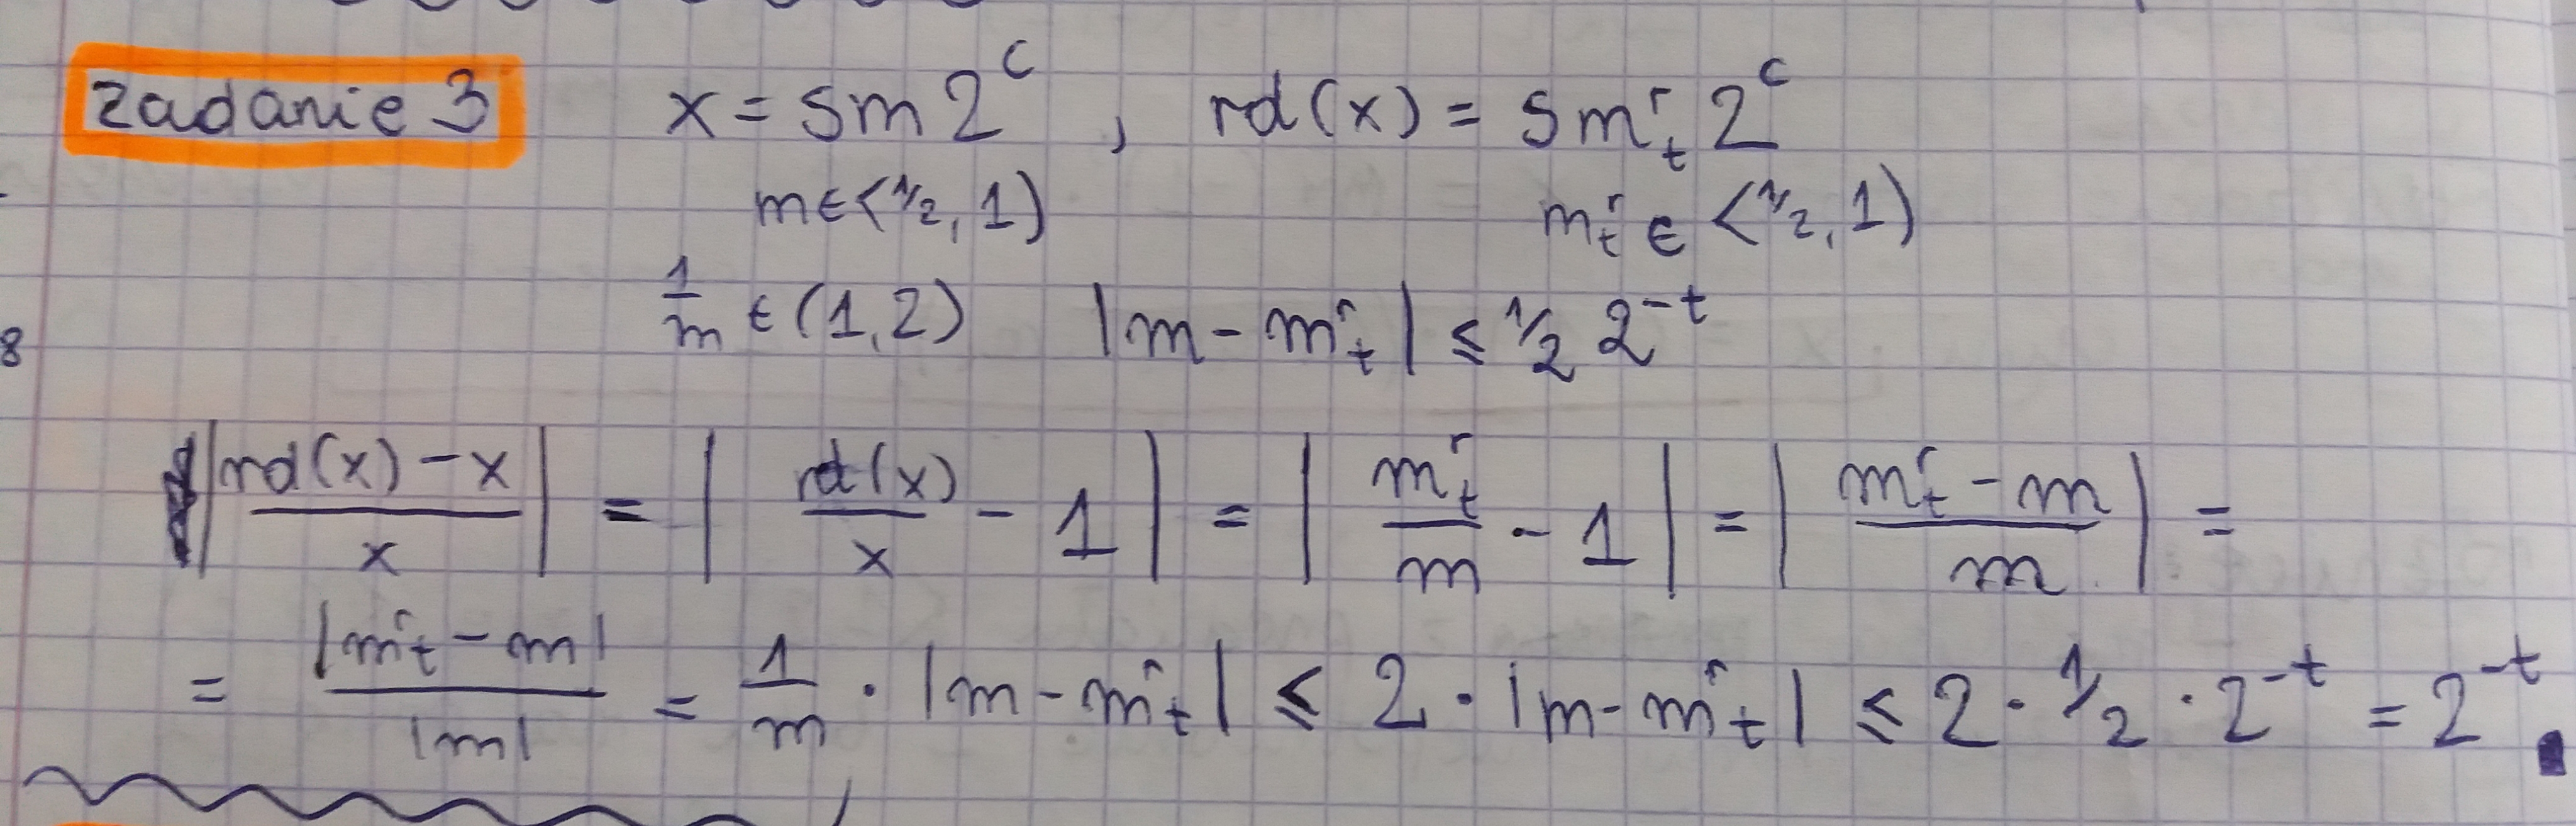 zadanie 3 x = s m 2^c , rd(x) = s m_t^r 2^c
m ∈ <1/2, 1) m_t^r ∈ <1/2, 1)
1/m ∈ (1, 2) |m - m_t^r| ≤ 1/2 2^-t
8
|(rd(x) - x)/x| = |rd(x)/x - 1| = |m_t^r/m - 1| = |(m_t^r - m)/m| =
= |m_t^r - m|/|m| = 1/m · |m - m_t^r| ≤ 2 · |m - m_t^r| ≤ 2 · 1/2 · 2^-t = 2^-t ▪